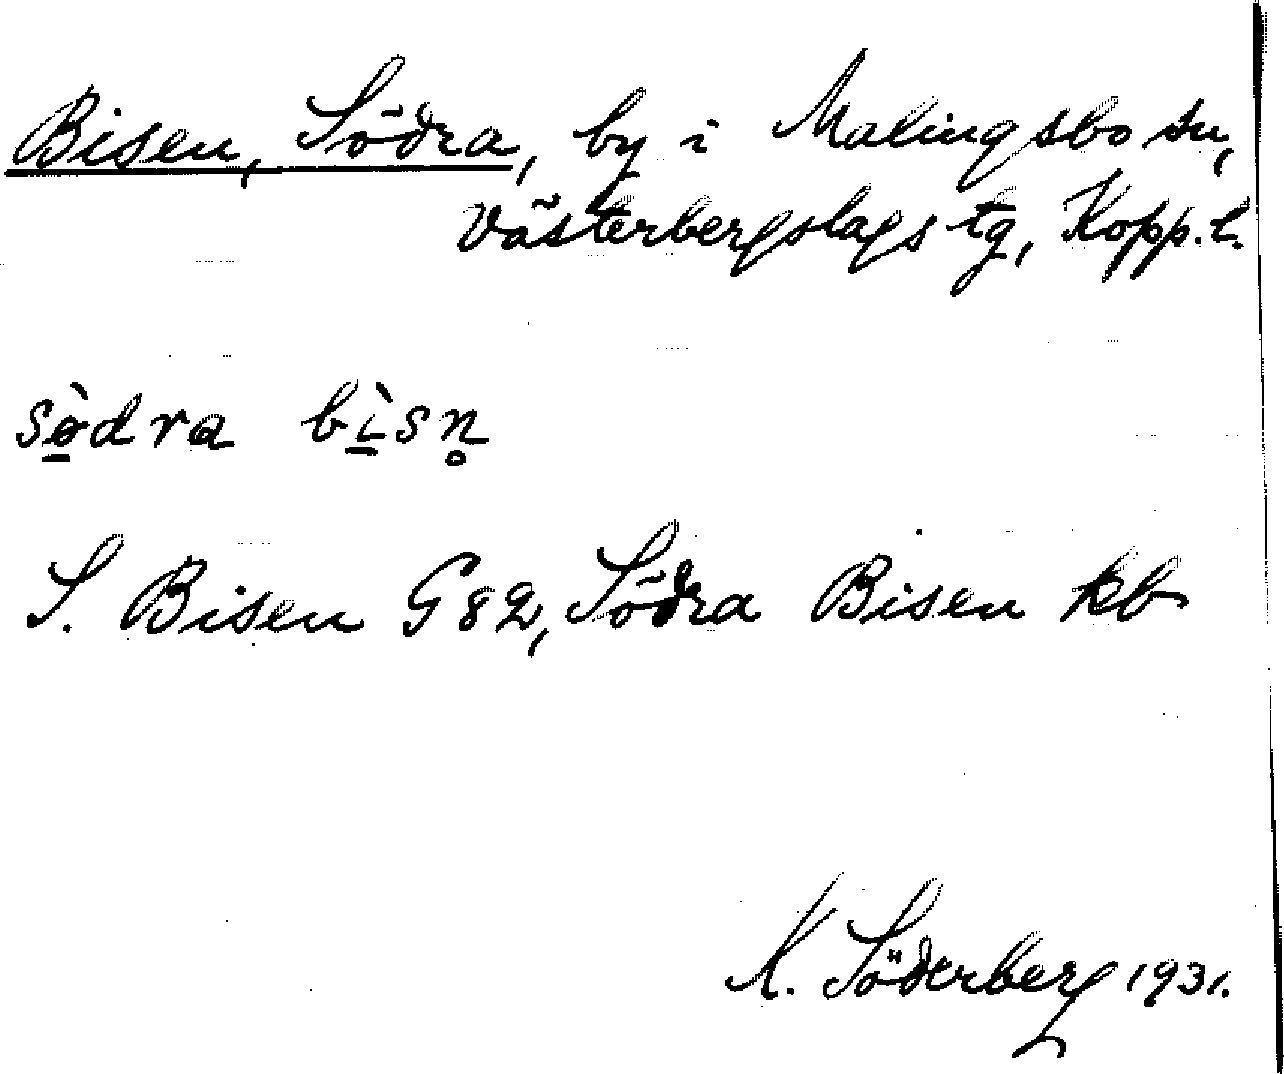 Bisen, Södra, by i Malingsbo sn,
Västerbergslags tg, Kopp. l.
sö̀dra bìsn̥
S. Bisen G82, Södra Bisen kb
K. Söderberg 1931.